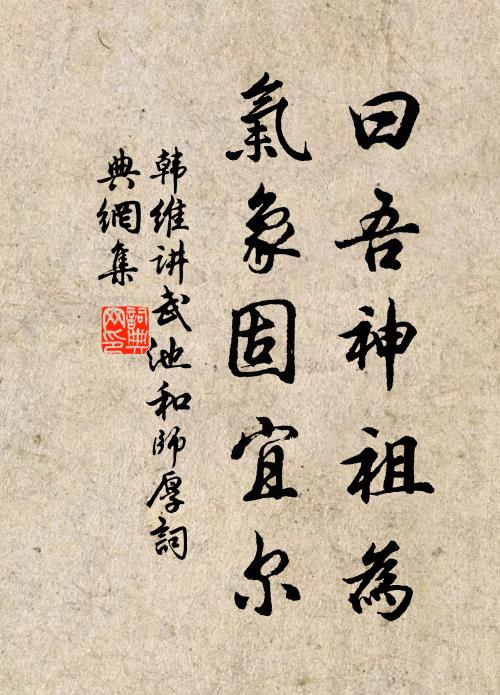 曰吾神祖為
氣象固宜尔
韩維讲武池和師厚詞
典網集
詞典网印